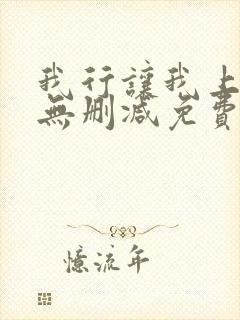 我行讓我上
無刪減免費
憶流年